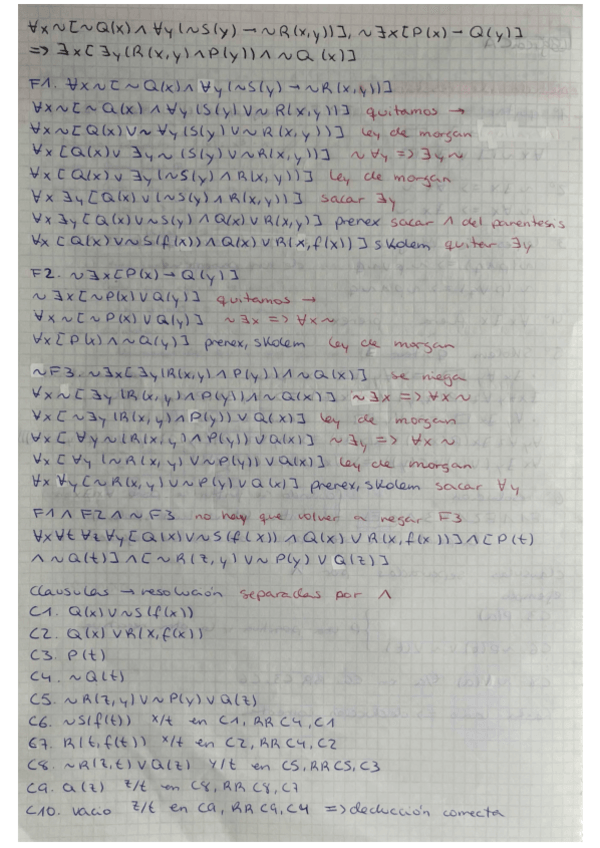 ∀x~[~Q(x)∧∀y(~S(y)→~R(x,y))], ~∃x[P(x)→Q(y)]
=> ∃x[∃y(R(x,y)∧P(y))∧~Q(x)]
F1. ∀x~[~Q(x)∧∀y(~S(y)→~R(x,y))]
∀x~[~Q(x)∧∀y(S(y)∨~R(x,y))] quitamos →
∀x~[Q(x)∨~∀y(S(y)∨~R(x,y))] ley de morgan
∀x[Q(x)∨∃y~(S(y)∨~R(x,y))] ~∀y => ∃y~
∀x[Q(x)∨∃y(~S(y)∧R(x,y))] ley de morgan
∀x∃y[Q(x)∨(~S(y)∧R(x,y))] sacar ∃y
∀x∃y[Q(x)∨~S(y)∧Q(x)∨R(x,y)] prenex sacar ∧ del parentesis
∀x[Q(x)∨~S(f(x))∧Q(x)∨R(x,f(x))] skolem quitar ∃y
F2. ~∃x[P(x)→Q(y)]
~∃x[~P(x)∨Q(y)] quitamos →
∀x~[~P(x)∨Q(y)] ~∃x => ∀x~
∀x[P(x)∧~Q(y)] prenex, skolem ley de morgan
~F3. ~∃x[∃y(R(x,y)∧P(y))∧~Q(x)] se niega
∀x~[∃y(R(x,y)∧P(y))∧~Q(x)] ~∃x => ∀x~
∀x[~∃y(R(x,y)∧P(y))∨Q(x)] ley de morgan
∀x[∀y~(R(x,y)∧P(y))∨Q(x)] ~∃y => ∀x~
∀x[∀y(~R(x,y)∨~P(y))∨Q(x)] ley de morgan
∀x∀y[~R(x,y)∨~P(y)∨Q(x)] prenex, skolem sacar ∀y
F1∧F2∧~F3 no hay que volver a negar F3
∀x∀t∀z∀y[Q(x)∨~S(f(x))∧Q(x)∨R(x,f(x))]∧[P(t)
∧~Q(t)]∧[~R(z,y)∨~P(y)∨Q(z)]
Clausulas → resolución separadas por ∧
C1. Q(x)∨~S(f(x))
C2. Q(x)∨R(x,f(x))
C3. P(t)
C4. ~Q(t)
C5. ~R(z,y)∨~P(y)∨Q(z)
C6. ~S(f(t)) x/t en C1, RR C4, C1
C7. R(t,f(t)) x/t en C2, RR C4, C2
C8. ~R(z,t)∨Q(z) y/t en C5, RR C5, C3
C9. Q(z) z/t en C8, RR C8, C7
C10. vacio z/t en C9, RR C9, C4 => deducción correcta